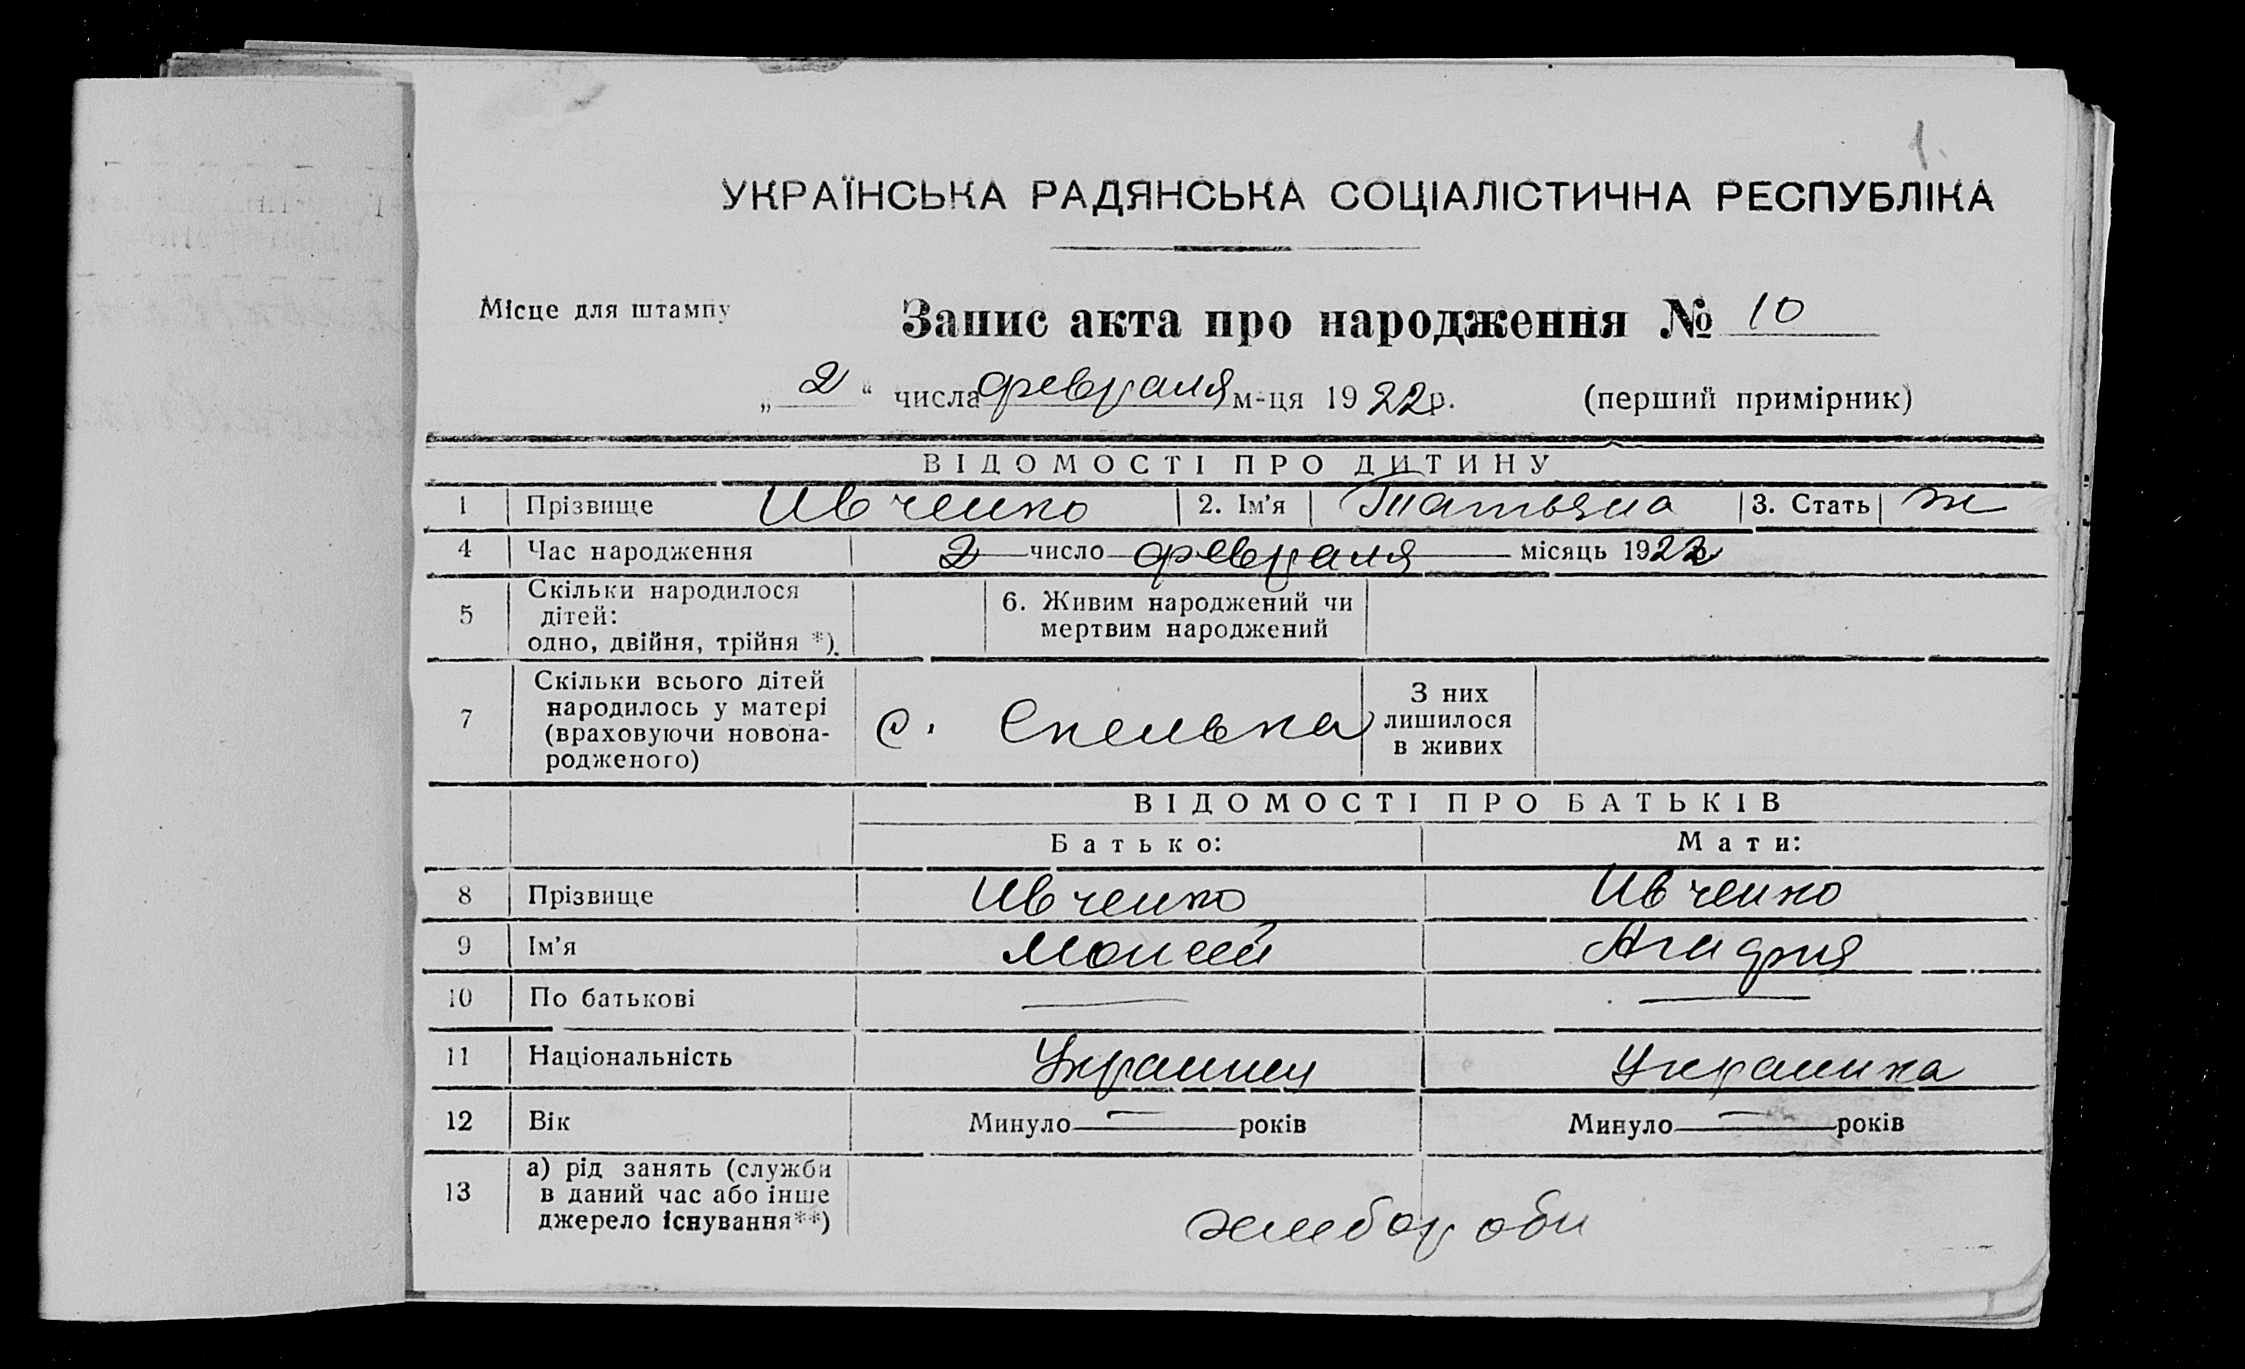 1.
УКРАЇНСЬКА РАДЯНСЬКА СОЦІАЛІСТИЧНА РЕСПУБЛІКА
Місце для штампу
Запис акта про народження № 10
„ 2 “ числа февраля м-ця 1922р. (перший примірник)
ВІДОМОСТІ ПРО ДИТИНУ
1 Прізвище Ивченко 2. Ім'я Татьяна 3. Стать ж
4 Час народження 2 число февраля місяць 1922
5 Скільки народилося дітей: одно, двійня, трійня *). 6. Живим народжений чи мертвим народжений
7 Скільки всього дітей народилось у матері (враховуючи новона-родженого) с. Спелька З них лишилося в живих
ВІДОМОСТІ ПРО БАТЬКІВ
Батько: Мати:
8 Прізвище Ивченко Ивченко
9 Ім'я Моисей Агифия
10 По батькові — —
11 Національність Украинец Украинка
12 Вік Минуло — років Минуло — років
13 а) рід занять (служби в даний час або інше джерело існування**)